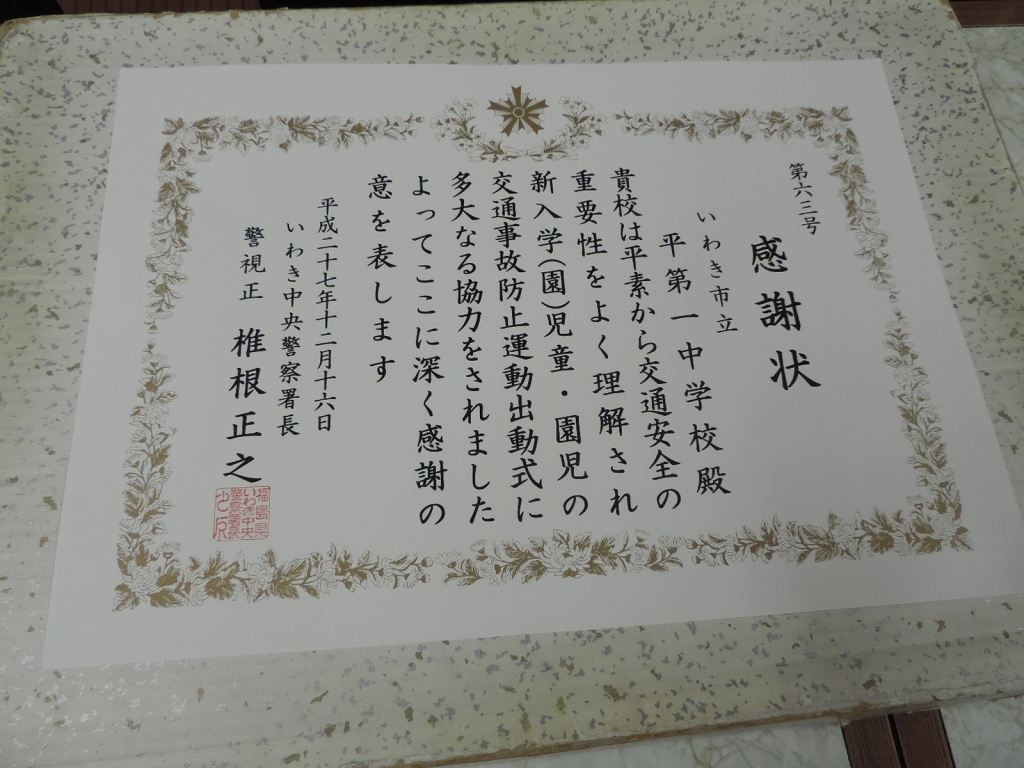 第六三号
感謝状
いわき市立
平第一中学校殿
貴校は平素から交通安全の
重要性をよく理解され
新入学(園)児童・園児の
交通事故防止運動出動式に
多大なる協力をされました
よってここに深く感謝の
意を表します
平成二十七年十二月十六日
いわき中央警察署長
警視正 椎根正之
福島県
いわき中央
警察署長
之印